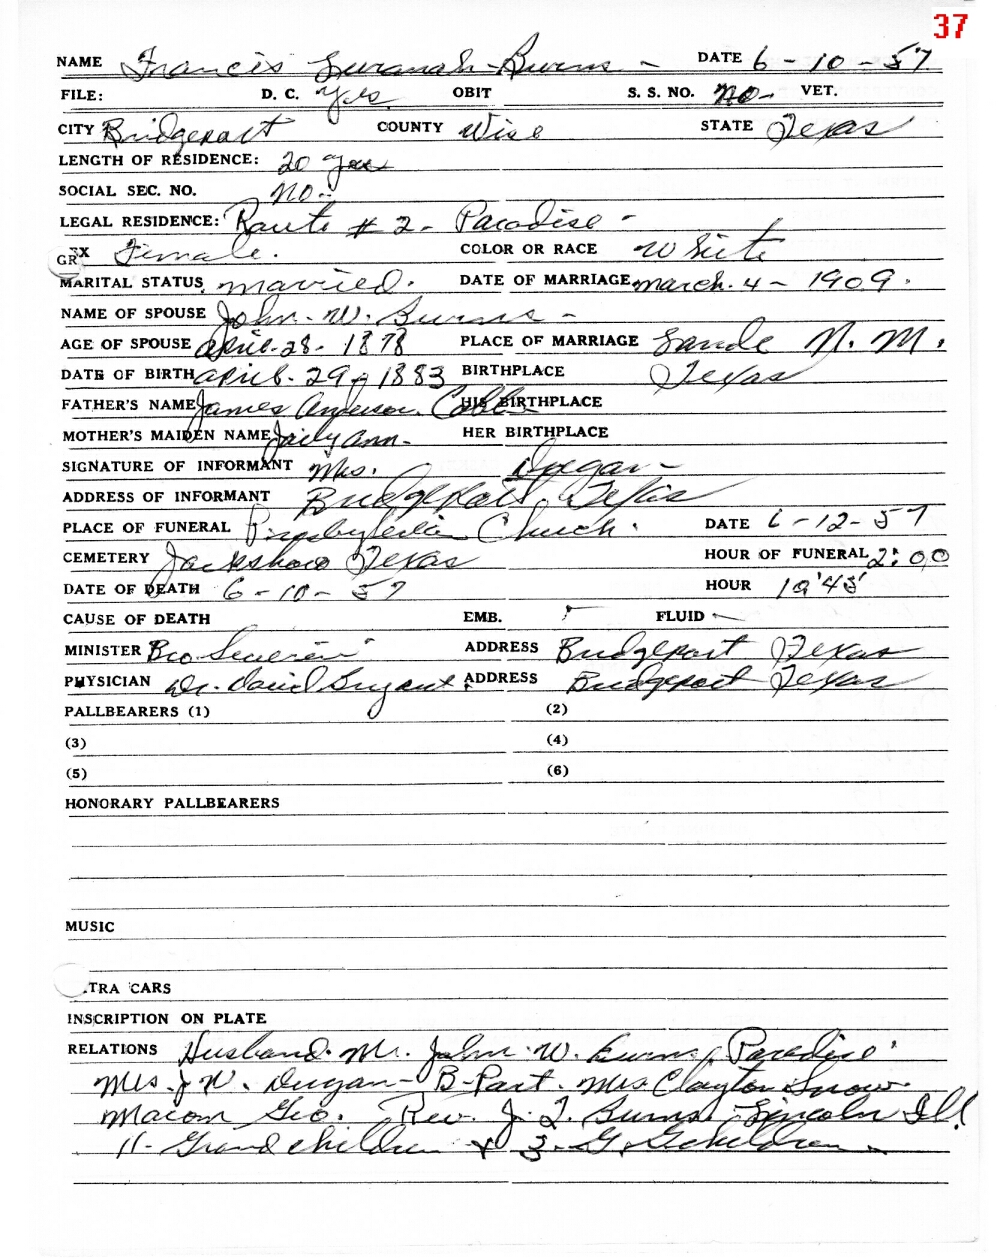 37
NAME Francis Suranah Burns - DATE 6 - 10 - 57
FILE: D. C. Yes OBIT S. S. NO. no - VET.
CITY Bridgeport COUNTY Wise STATE Texas
LENGTH OF RESIDENCE: 20 yrs
SOCIAL SEC. NO. no -
LEGAL RESIDENCE: Route # 2 - Paradise -
GR X Female. COLOR OR RACE White
MARITAL STATUS married. DATE OF MARRIAGE march. 4 - 1909.
NAME OF SPOUSE John. W. Burns -
AGE OF SPOUSE April. 28 - 1878 PLACE OF MARRIAGE N. M.
DATE OF BIRTH April. 29 - 1883 BIRTHPLACE Texas
FATHER'S NAME James Anderson HIS BIRTHPLACE
MOTHER'S MAIDEN NAME Ann - HER BIRTHPLACE
SIGNATURE OF INFORMANT Mrs. Dugan -
ADDRESS OF INFORMANT Bridgeport, Texas
PLACE OF FUNERAL Presbyterian Church. DATE 6 - 12 - 57
CEMETERY Jacksboro Texas HOUR OF FUNERAL 2:00
DATE OF DEATH 6 - 10 - 57 HOUR 10'45'
CAUSE OF DEATH EMB. FLUID -
MINISTER Bro ADDRESS Bridgeport Texas
PHYSICIAN Dr. David Bryant. ADDRESS Bridgeport Texas
PALLBEARERS (1) (2)
(3) (4)
(5) (6)
HONORARY PALLBEARERS
MUSIC
TRA CARS
INSCRIPTION ON PLATE
RELATIONS Husband. Mr. John. W. Burns, Paradise
Mrs. J W. Dugan - B-Port. Mrs Clayton Snow.
Macon Geo. Rev. J. T. Burns. Lincoln Ill.
11 - Grand children & 3 - G. Gchildren.